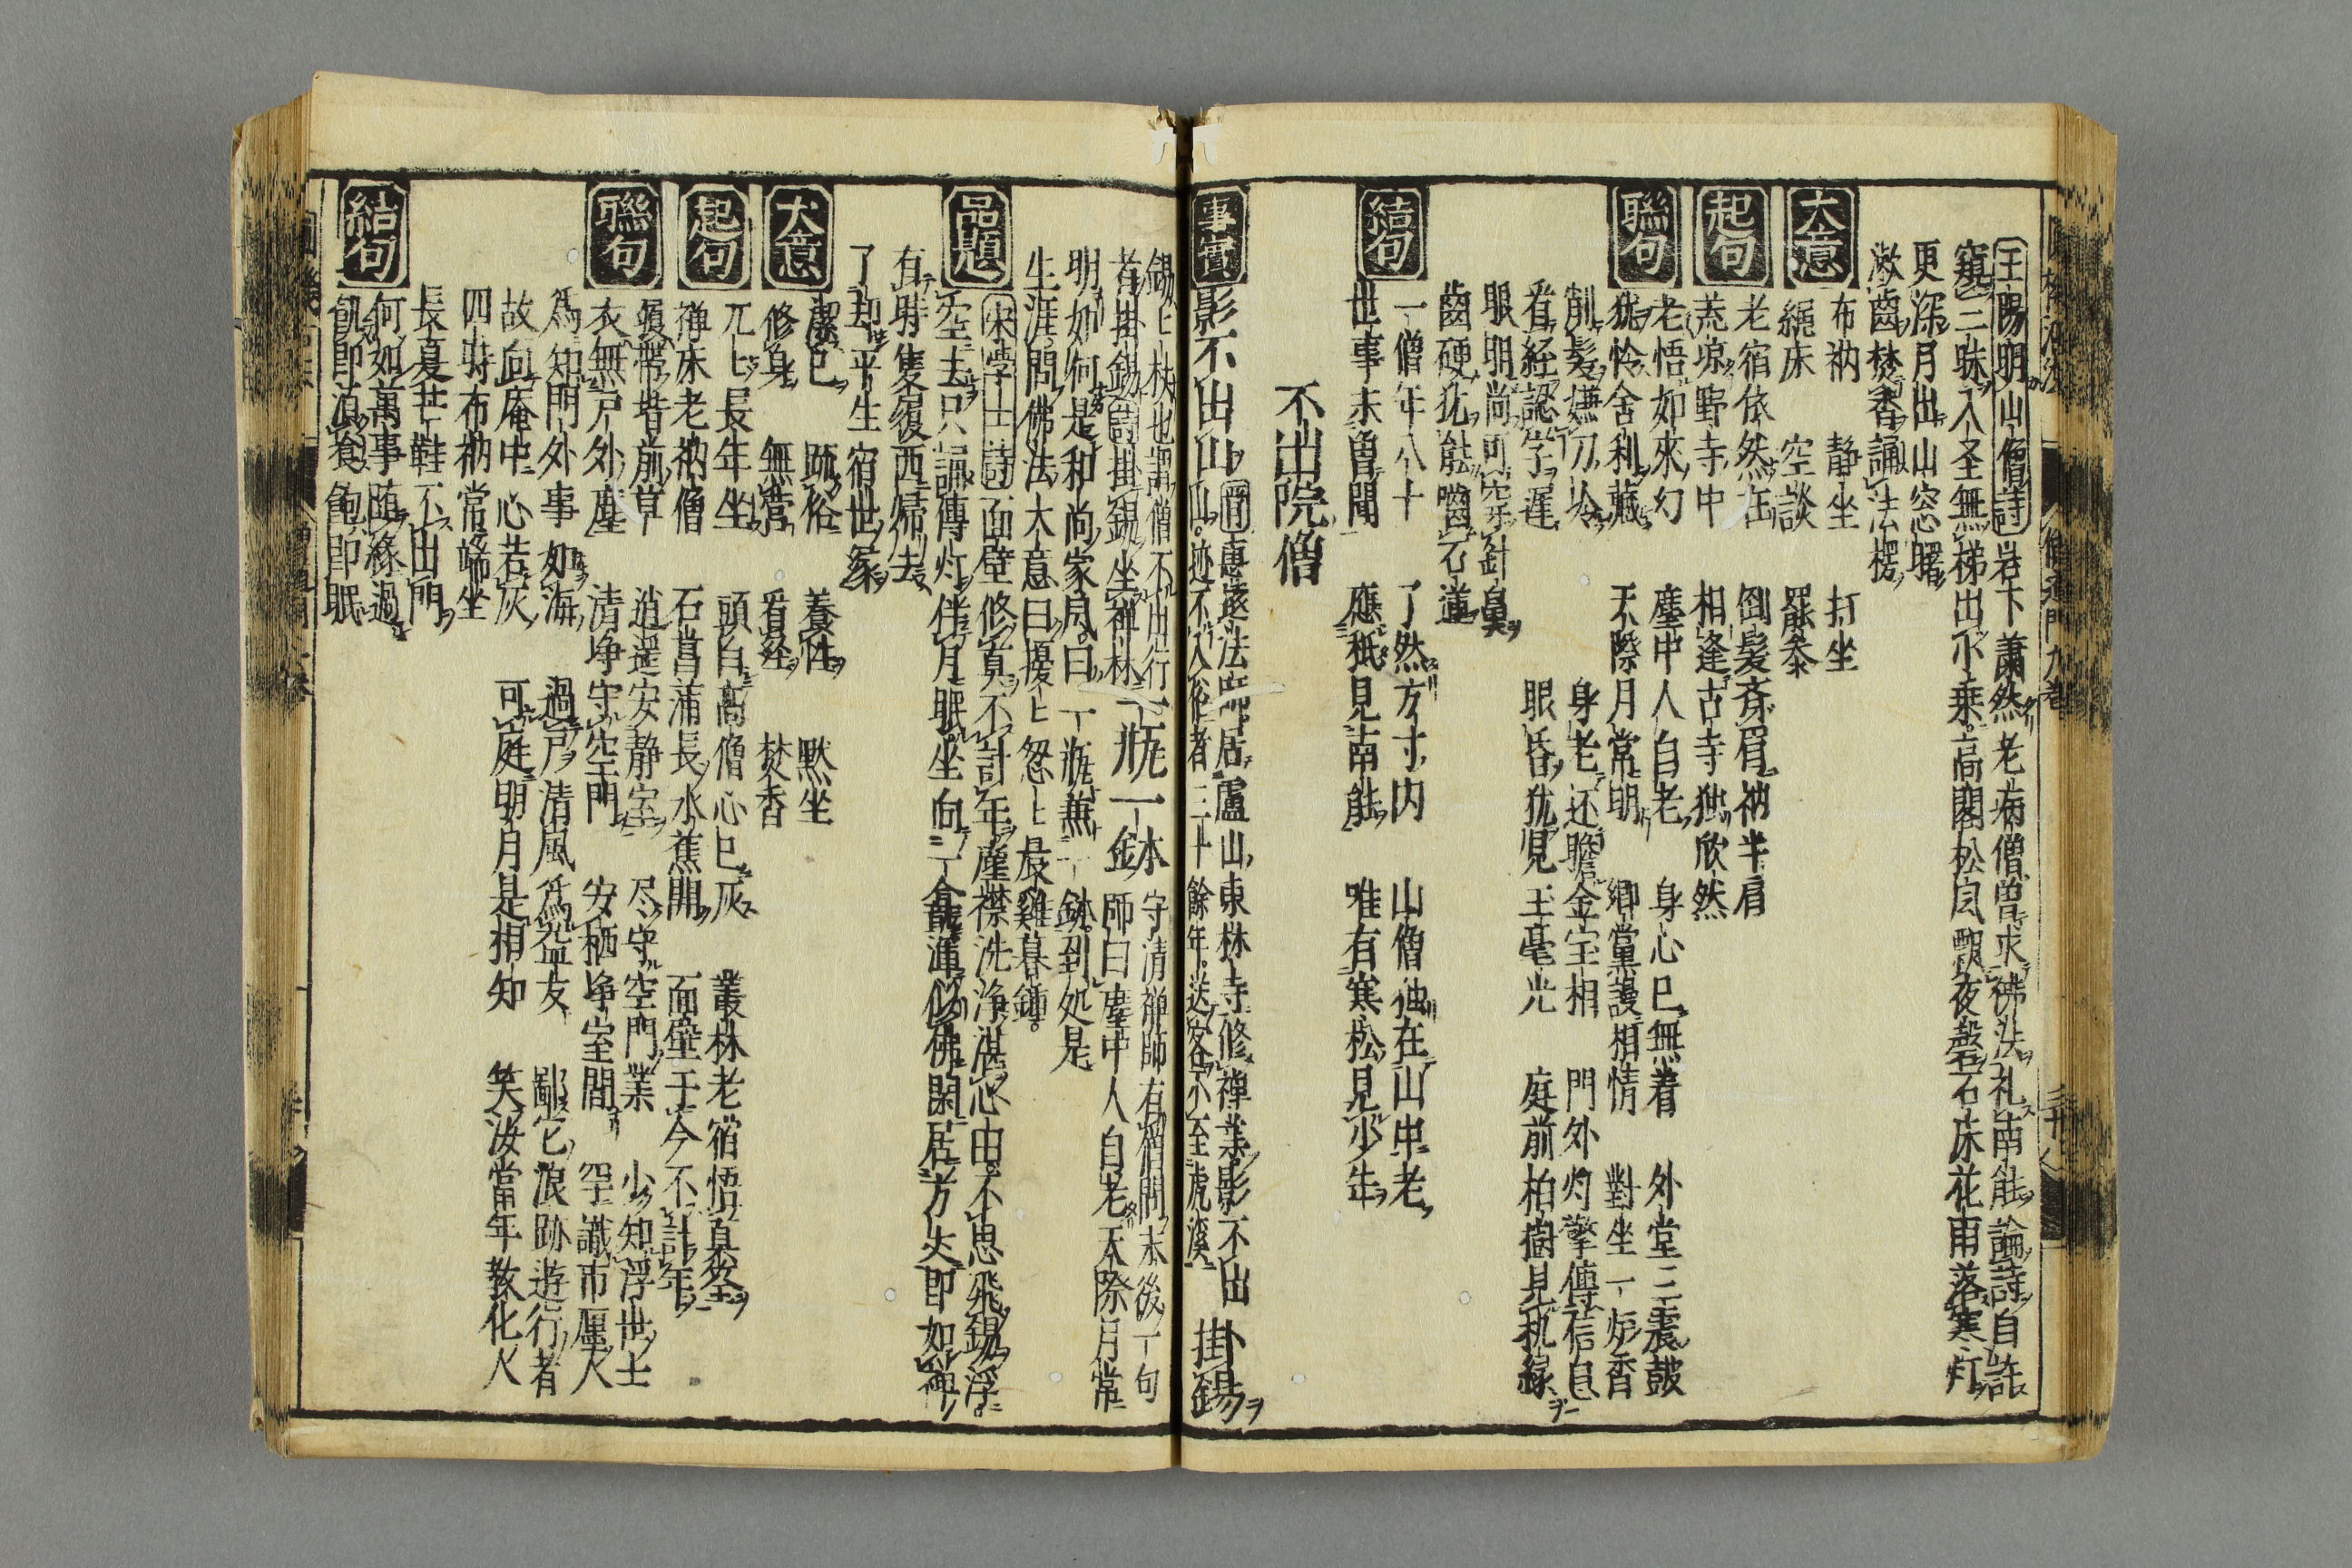 王陽明山僧詩 岩下蕭然老病僧曽求佛法礼南能論詩自許
窺三昧入圣無梯出小乗高閣松风飄夜磬石床花雨落寒灯
更深月出山窓曙
漱齒焚香誦法楞
大意 布衲 静坐 打坐
繩床 空談 罷参
起句 老宿依然在 剑髪斉眉衲半肩
荒凉野寺中 相逢古寺独欣然
聯句 老悟如來幻 塵中人自老 身心已無着 外堂三震鼓
犹怜舍利蔵 天際月常明 郷黨謾相情 對坐一炉香
削髪嫌刀冷 身老还瞻金宝相 門外灼擎傳信息
看経認字遅 眼昏犹見玉毫光 庭前柏樹見机縁
眼明尚可穿針鼻
齒硬犹能嚙石蓮
結句 一僧年八十 了然方寸内 山僧独在山中老
世事未曽聞 應秖見南能 唯有寒松見少年
不出院僧
事實 影不出山 晋惠遠法師居盧山東林寺修禅業影不出
山迹不入俗者三十餘年送客不至虎溪 掛錫
錫上杖也謂僧不出行
者掛錫詩掛錫坐禅林 一瓶一鉢 守清禅師有僧問末後一句
師曰塵中人自老天際月常
明如何是和尚家风曰一瓶兼一鉢到処是
生涯問佛法大意曰擾上怱上晨雞暮鍾
品題 宋学士詩 面壁修真不計年塵襟洗浄湛心由不思飛錫浮
空去只誦傳灯伴月眠坐向一龕渾似佛閑居方丈即如禅
有時隻履西歸去
了却平生宿世緣
大意 潔已 䟽俗 養性 黙坐
修身 無營 看経 焚香
起句 兀上長年坐 頭白高僧心已灰 叢林老宿悟真筌
禅床老衲僧 石菖蒲長水蕉開 面壁于今不計年
聯句 履帶堦前草 逍遥安静室 尽守空門業 少知浮世士
衣無戸外塵 清浄守空門 安栖浄室間 罕識市廛人
為知門外事如海 過戸清風為益友 鄙它浪跡遊行者
故向庵中心若灰 可庭明月是相知 笑汝當年教化人
四時布衲常端坐
長夏芒鞋不出門
結句 何如萬事随縁過
飢即湏飡飽即眠